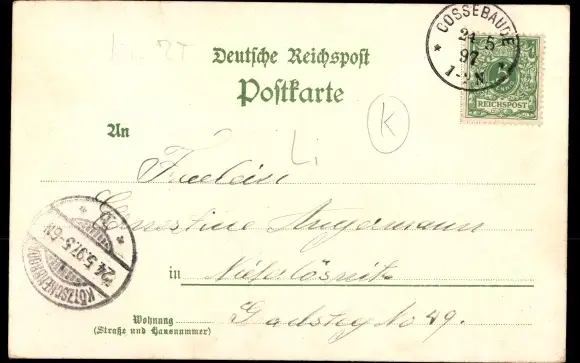 COSSEBAUDE
24 5
97
1-2 N.
REICHSPOST
Deutsche Reichspost
Postkarte
K
Li
An
Fräulein
Ernestine Angermann
in Niederlössnitz
Wohnung
(Straße und Hausnummer)
No 49.
KÖTZSCHENBRODA
24.5.97.5-6N